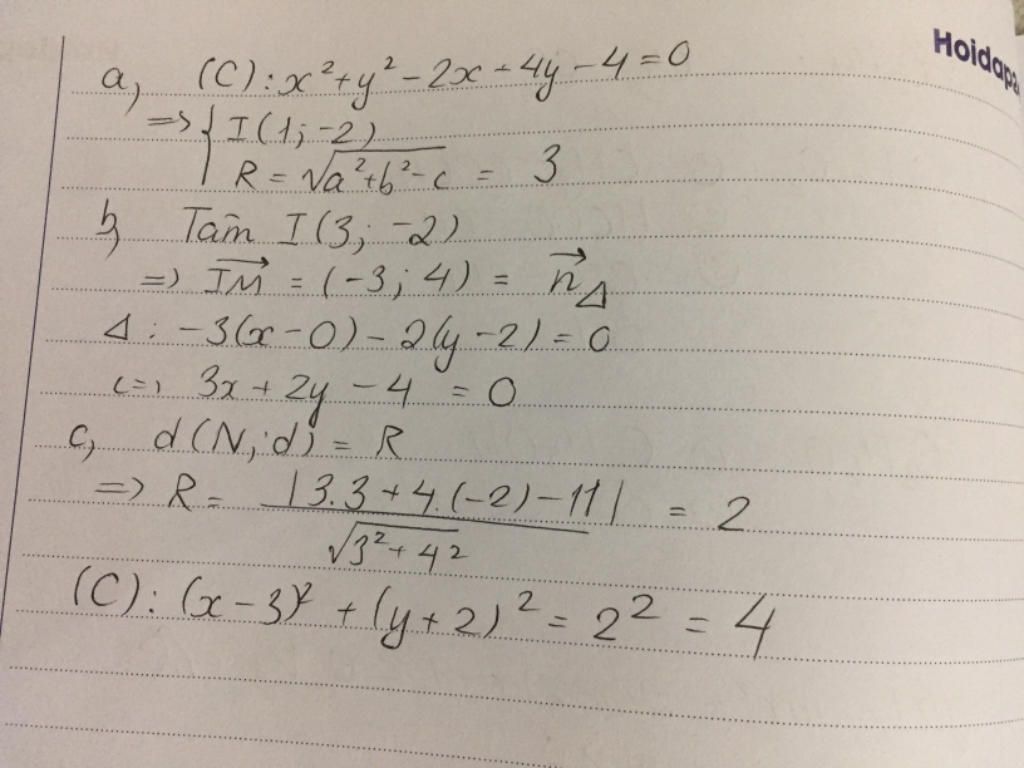 Hoidap
a, (C): x² + y² - 2x + 4y - 4 = 0
=> { I(1; -2)
R = √a²+b²-c = 3
b, Tâm I(3; -2)
=> IM→ = (-3; 4) = n→Δ
Δ: -3(x - 0) - 2(y - 2) = 0
<=> 3x + 2y - 4 = 0
c, d(N; d) = R
=> R = |3.3 + 4.(-2) - 11| / √3² + 4² = 2
(C): (x - 3)² + (y + 2)² = 2² = 4